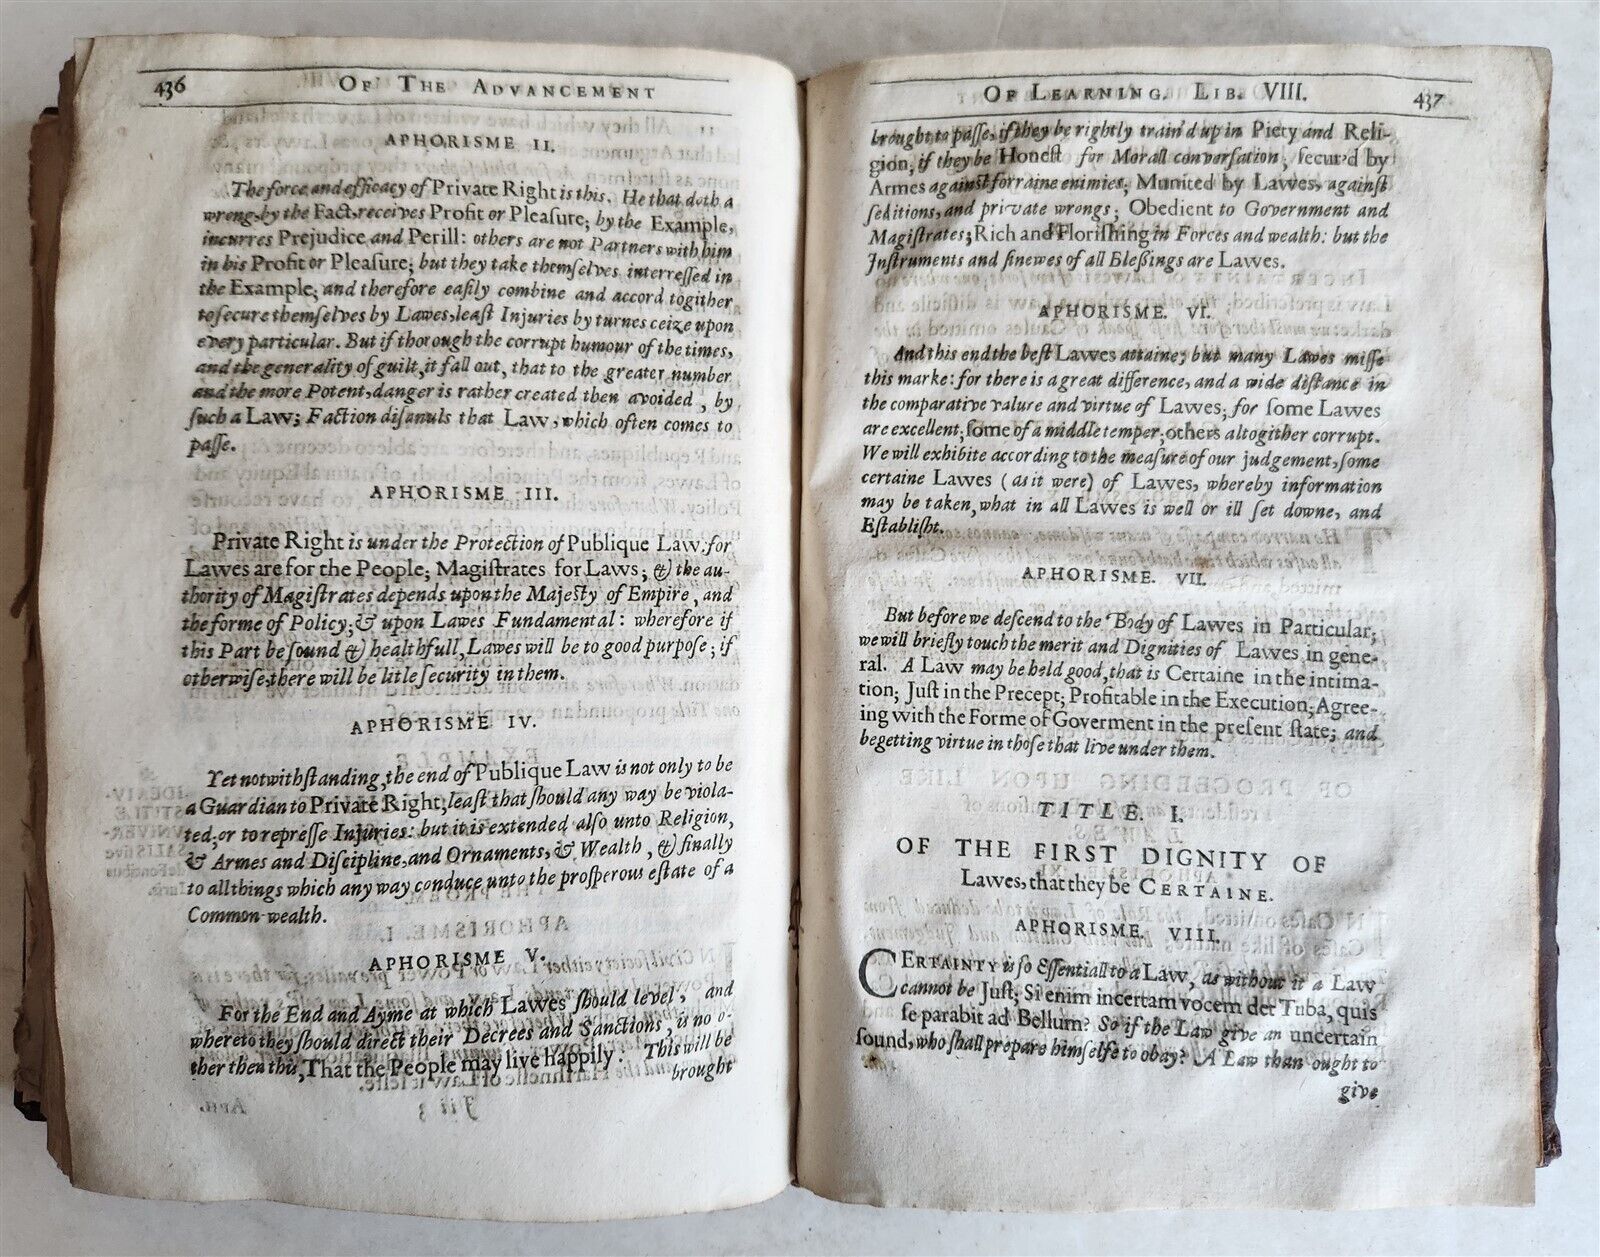 436 OF THE ADVANCEMENT
APHORISME II.
The force and efficacy of Private Right is this. He that doth a
wrong, by the Fact, receives Profit or Pleaſure; by the Example,
incurres Prejudice and Perill: others are not Partners with him
in his Profit or Pleaſure; but they take themſelves interreſſed in
the Example; and therefore eaſily combine and accord togither
to ſecure themſelves by Lawes, leaſt Injuries by turnes ceize upon
every particular. But if thorough the corrupt humour of the times,
and the generality of guilt, it fall out, that to the greater number
and the more Potent, danger is rather created then avoided, by
ſuch a Law; Faction diſanuls that Law, which often comes to
paſſe.
APHORISME III.
Private Right is under the Protection of Publique Law: for
Lawes are for the People; Magiſtrates for Laws; & the au-
thority of Magiſtrates depends upon the Majeſty of Empire, and
the forme of Policy; & upon Lawes Fundamental: wherefore if
this Part be ſound & healthfull, Lawes will be to good purpoſe; if
otherwiſe, there will be litle ſecurity in them.
APHORISME IV.
Yet notwithſtanding, the end of Publique Law is not only to be
a Guardian to Private Right, leaſt that ſhould any way be viola-
ted; or to repreſſe Injuries: but it is extended alſo unto Religion,
& Armes and Diſcipline, and Ornaments, & Wealth, & finally
to all things which any way conduce unto the proſperous eſtate of a
Common-wealth.
APHORISME V.
For the End and Ayme at which Lawes ſhould level, and
whereto they ſhould direct their Decrees and Sanctions, is no o-
ther then this, That the People may live happily: This will be
brought
OF LEARNING. LIB. VIII. 437
brought to paſſe, if they be rightly train'd up in Piety and Reli-
gion; if they be Honeſt for Morall converſation; ſecur'd by
Armes againſt forraine enimies; Munited by Lawes, againſt
ſeditions, and private wrongs; Obedient to Government and
Magiſtrates; Rich and Floriſhing in Forces and wealth: but the
Inſtruments and ſinewes of all Bleſsings are Lawes.
APHORISME. VI.
And this end the beſt Lawes attaine; but many Lawes miſſe
this marke: for there is a great difference, and a wide diſtance in
the comparative valure and virtue of Lawes; for ſome Lawes
are excellent; ſome of a middle temper; others altogither corrupt.
We will exhibite according to the meaſure of our judgement, ſome
certaine Lawes (as it were) of Lawes, whereby information
may be taken, what in all Lawes is well or ill ſet downe, and
Eſtabliſht.
APHORISME. VII.
But before we deſcend to the Body of Lawes in Particular;
we will briefly touch the merit and Dignities of Lawes in gene-
ral. A Law may be held good, that is Certaine in the intima-
tion; Juſt in the Precept; Profitable in the Execution; Agree-
ing with the Forme of Goverment in the preſent ſtate; and
begetting virtue in thoſe that live under them.
TITLE. I.
OF THE FIRST DIGNITY OF
Lawes, that they be CERTAINE.
APHORISME. VIII.
CERTAINTY is ſo Eſſentiall to a Law, as without it a Law
cannot be Juſt; Si enim incertam vocem det Tuba, quis
ſe parabit ad Bellum? So if the Law give an uncertain
ſound, who ſhall prepare himſelfe to obay? A Law than ought to
give